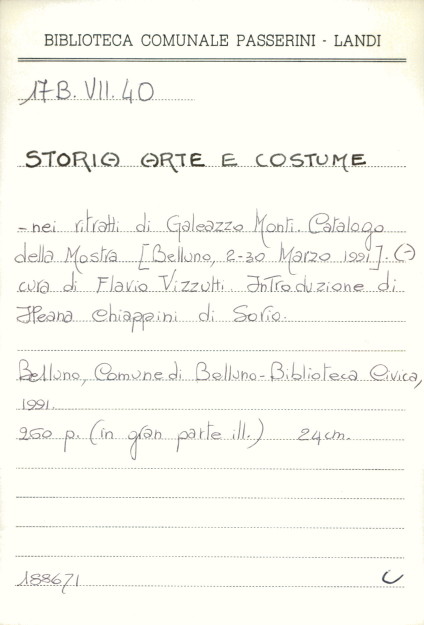 BIBLIOTECA COMUNALE PASSERINI - LANDI
17B. VII. 40
STORIA ARTE E COSTUME
- nei ritratti di Galeazzo Monti. Catalogo
della Mostra [Belluno, 2-30 Marzo 1991]. A
cura di Flavio Vizzutti Introduzione di
Ileana Chiappini di Sorio.
Belluno, Comune di Belluno - Biblioteca Civica,
1991.
260 p. (in gran parte ill.) 24 cm.
188671